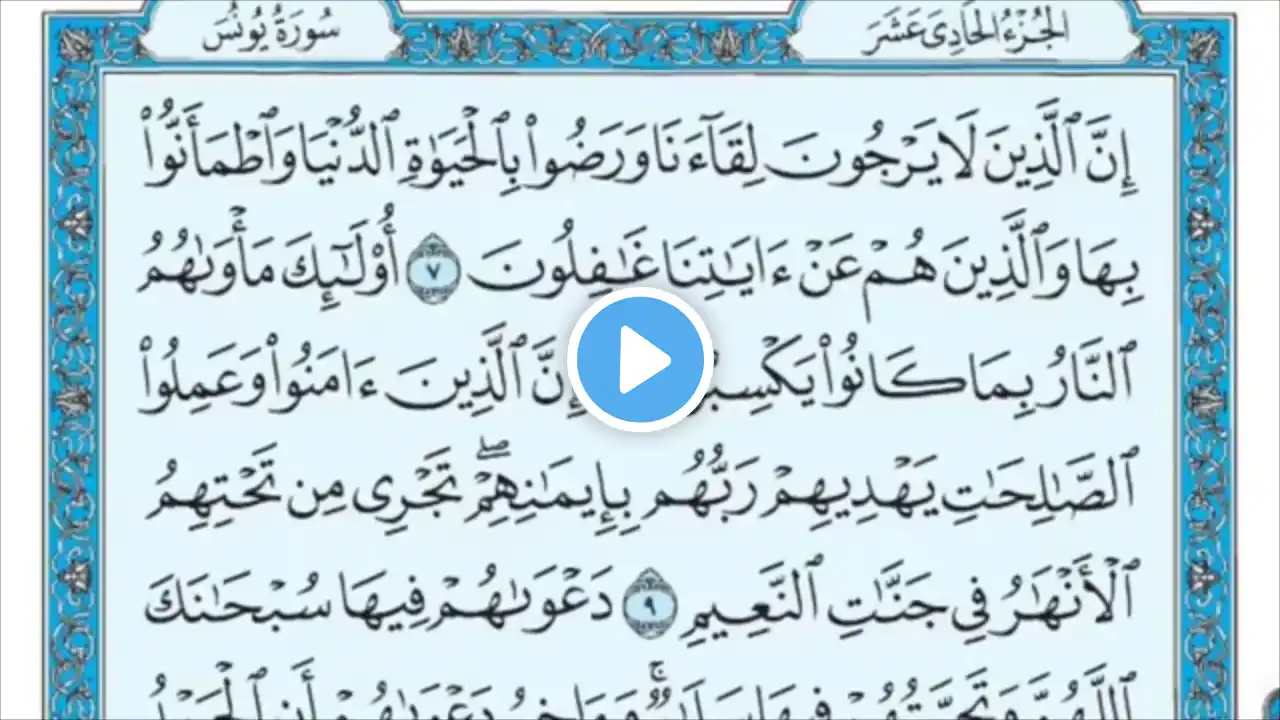 الجُزْءُ الحَادِى عَشَرَ
سُورَةُ يُونُسَ
إِنَّ ٱلَّذِينَ لَا يَرْجُونَ لِقَآءَنَا وَرَضُوا۟ بِٱلْحَيَوٰةِ ٱلدُّنْيَا وَٱطْمَأَنُّوا۟
بِهَا وَٱلَّذِينَ هُمْ عَنْ ءَايَـٰتِنَا غَـٰفِلُونَ ٧ أُو۟لَـٰٓئِكَ مَأْوَىٰهُمُ
ٱلنَّارُ بِمَا كَانُوا۟ إِنَّ ٱلَّذِينَ ءَامَنُوا۟ وَعَمِلُوا۟
ٱلصَّـٰلِحَـٰتِ يَهْدِيهِمْ رَبُّهُم بِإِيمَـٰنِهِمْ ۖ تَجْرِى مِن تَحْتِهِمُ
ٱلْأَنْهَـٰرُ فِى جَنَّـٰتِ ٱلنَّعِيمِ ٩ دَعْوَىٰهُمْ فِيهَا سُبْحَـٰنَكَ
ٱللَّهُمَّ وَتَحِيَّتُهُمْ فِيهَا دَعْوَىٰهُمْ أَنِ ٱلْحَمْدُ